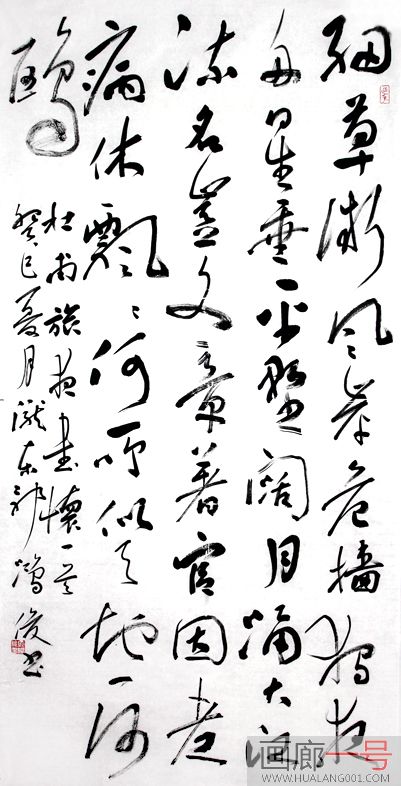 細草微风岸危檣獨夜
舟星垂平野阔月涌大江
流名豈文章著官因老
病休飄〻何所似天地一沙
鷗
杜甫旅夜书懷一首
癸巳夏月 东 鸿俊书
画廊一号
WWW.HUALANG001.COM